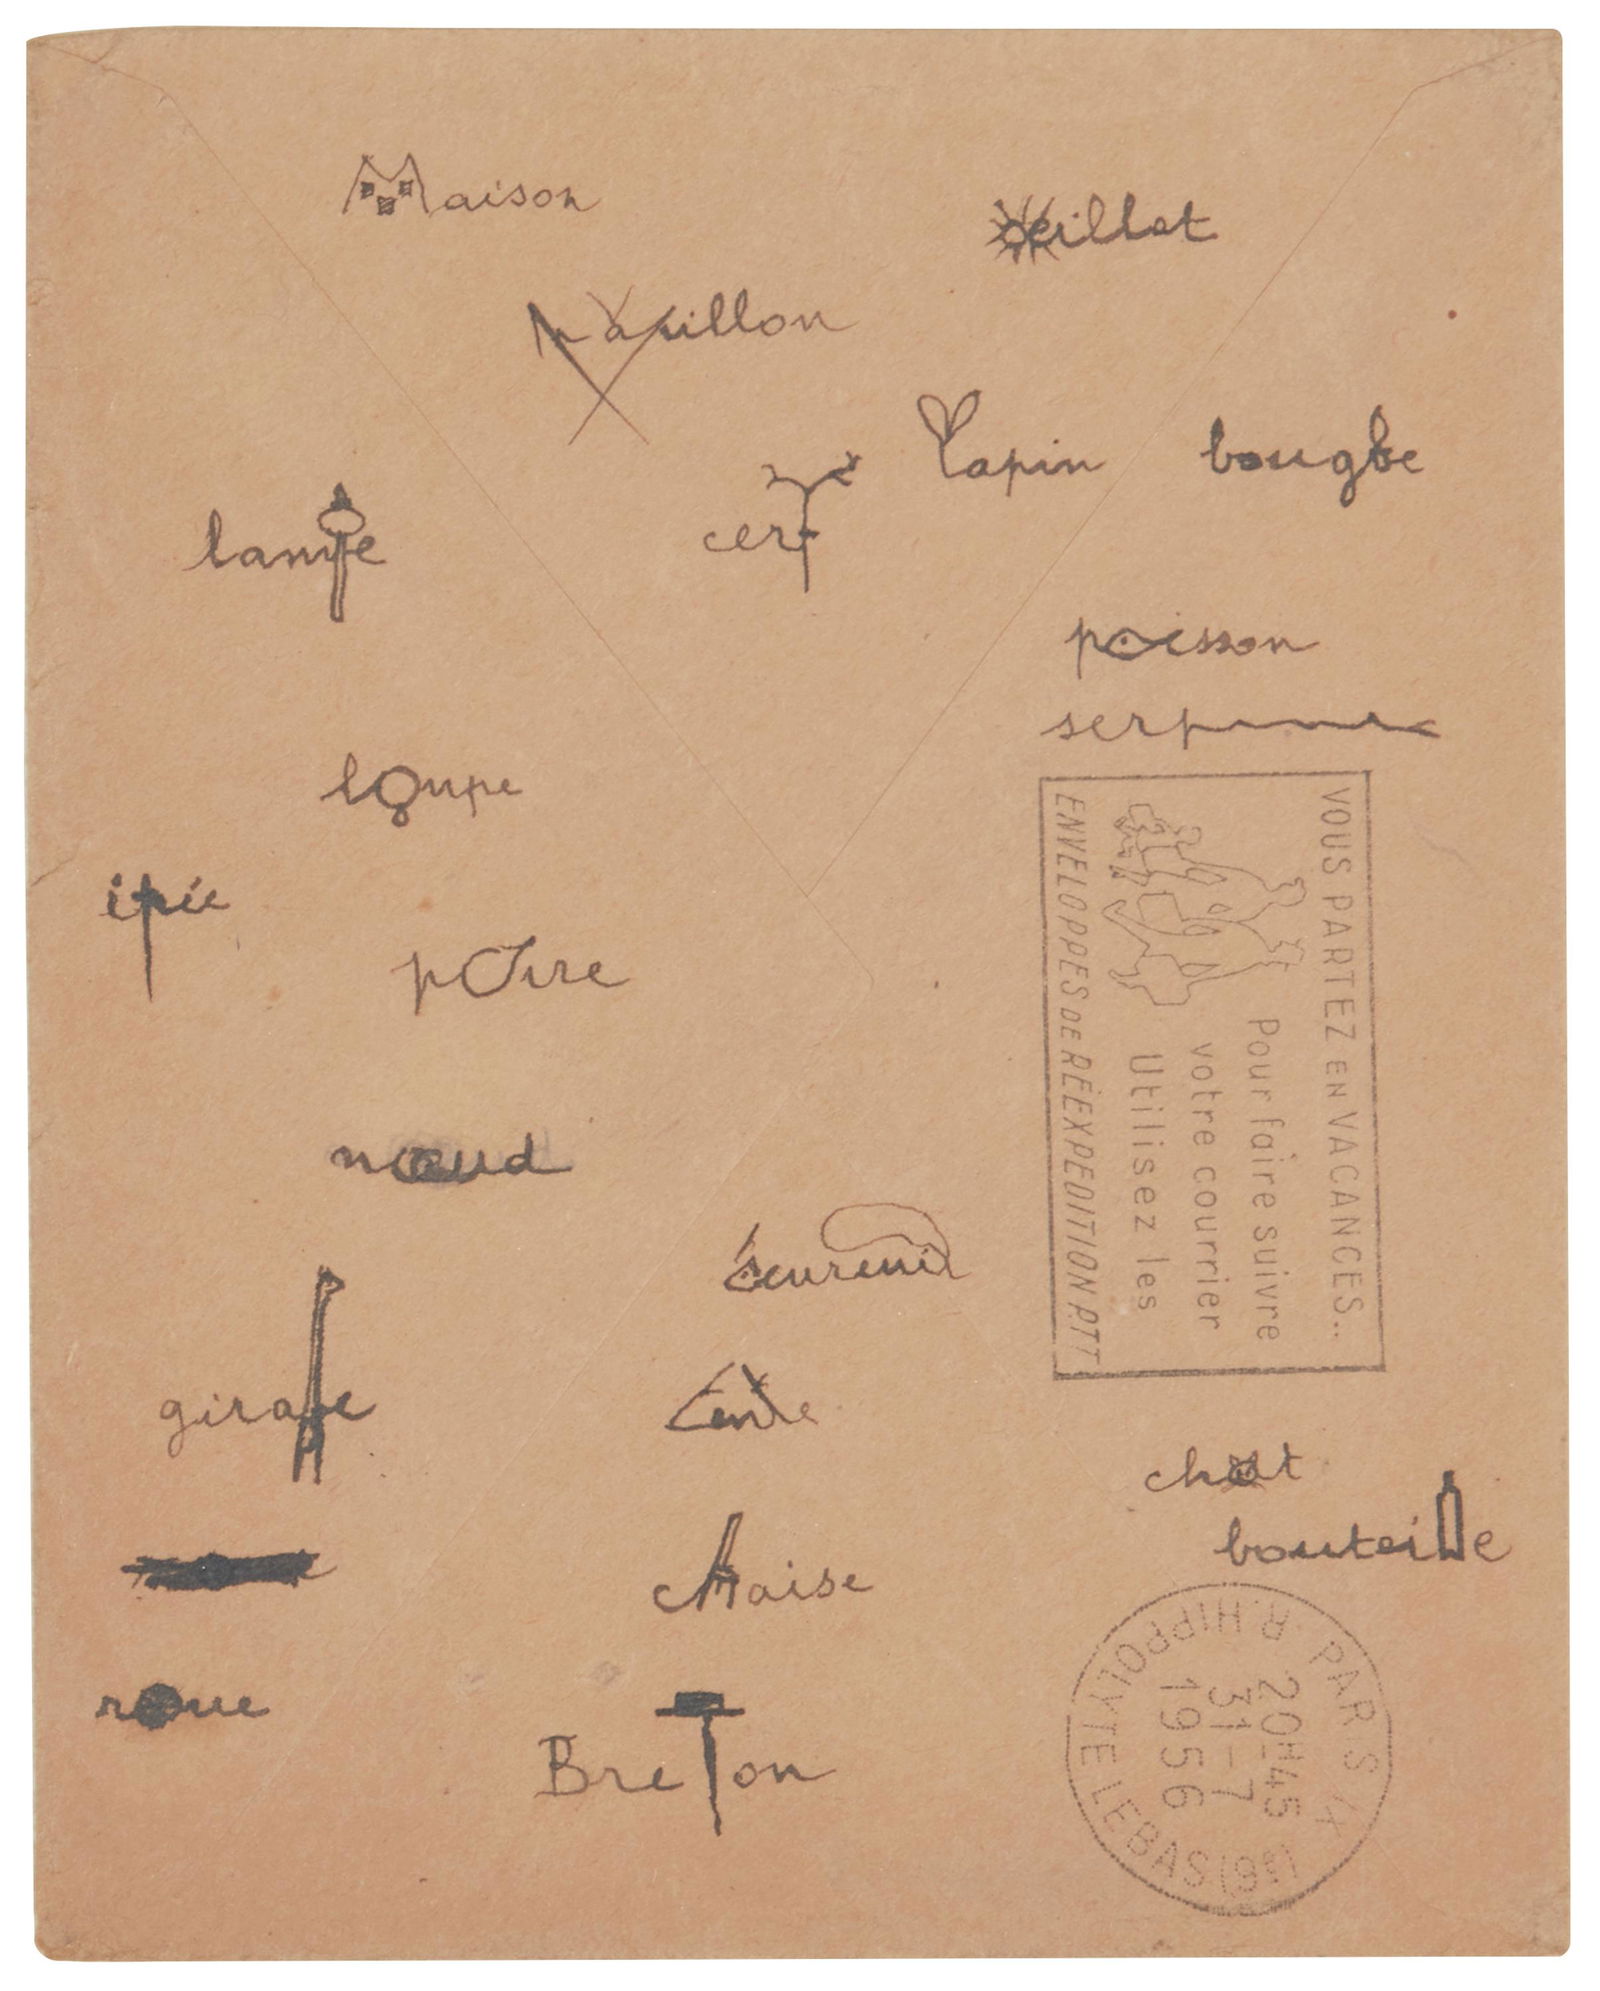 Maison
œillet
papillon
lapin
bougie
lampe
cerf
poisson
serpent
loupe
épée
poire
nœud
écureuil
girafe
tente
chat
bouteille
chaise
roue
BreTon
VOUS PARTEZ EN VACANCES..
Pour faire suivre
votre courrier
Utilisez les
ENVELOPPES DE RÉEXPEDITION PTT
PARIS IX
R. HIPPOLYTE LEBAS (9e)
20H45
31-7
1956